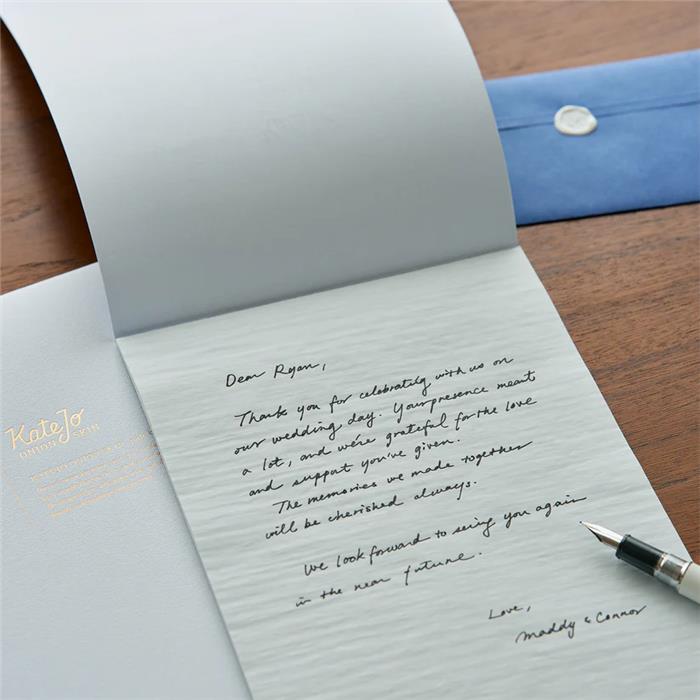 Dear Ryan,
Thank you for celebrating with us on
our wedding day. Your presence meant
a lot, and we're grateful for the love
and support you've given.
The memories we made together
will be cherished always.
We look forward to seeing you again
in the near future.
Love,
Maddy & Connor
Kate Jo
ONION SKIN